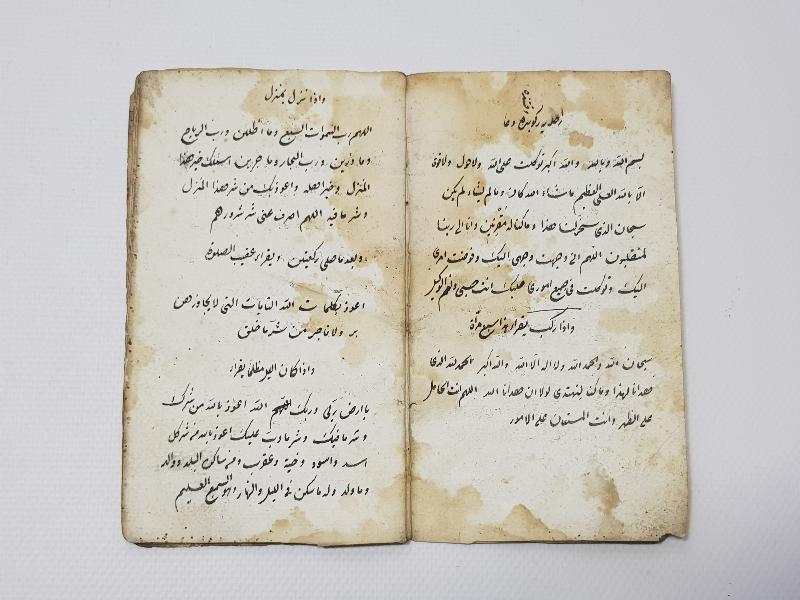 بسم الله وبالله والله اكبر توكلت على الله ولا حول ولا قوة
الا بالله العلى العظيم ماشاء الله كان ومالم يشاء لم يكن
سبحان الذى سخر لنا هذا وما كنا له مقرنين وانا الى ربنا
لمنقلبون اللهم انى وجهت وجهى اليك وفوضت امرى
اليك وتوكلت فى جميع امورى عليك انت حسبى ونعم الوكيل
واذا ركب يقرا هذا سبع مرة
سبحان الله والحمد لله ولا اله الا الله والله اكبر الحمد لله الذى
هدانا لهذا وما كنا لنهتدى لولا ان هدانا الله اللهم انت الحامل
على الظهر وانت المستعان على الامور
واذا نزل بمنزل
اللهم رب السموات السبع وما اظللن ورب الرياح
وما ذرين ورب البحار وما جرين اسئلك خير هذا
المنزل وخير اهله واعوذ بك من شر هذا المنزل
وشر ما فيه اللهم اصرف عنى شر شرورهم
وبعد ما صلى ركعتين ويقراء عقيب الصلوة
اعوذ بكلمات الله التامات التى لا يجاوزهن
بر ولا فاجر من شر ما خلق
واذا كان اليل مظلما يقراء
يا ارض ربى وربك اللهم الله اعوذ بالله من شرك
وشر ما فيك وشر ما دب عليك اعوذ بالله من شر كل
اسد واسود وحية وعقرب ومن ساكن البلد ووالد
وما ولد وله ما سكن فى اليل والنهار وهو السميع العليم